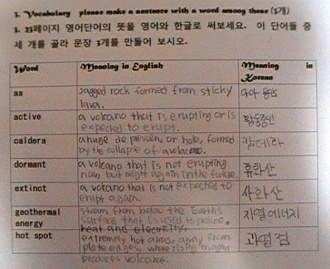 1. Vocabulary please make a sentence with a word among these (3개)
1. 13페이지 영어단어의 뜻을 영어와 한글로 써보세요. 이 단어들 중
세 개를 골라 문장 3개를 만들어 보시오.
Word Meaning in English Meaning in Korean
aa Jagged rock formed from sticky
lava. 아아 용암
active a volcano that is erupting or is
expected to erupt. 활동중인
caldera a huge depression, or hole, formed
by the collapse of a volcano. 칼데라
dormant a volcano that is not erupting
now but might again in the future. 휴화산
extinct a volcano that is not expected to
erupt again. 사화산
geothermal steam from below the Earth's
energy surface that is used to
heat and electricity. 지열에너지
hot spot extremely hot area, away from
plate edges, where magma
produces volcanos. 과열점